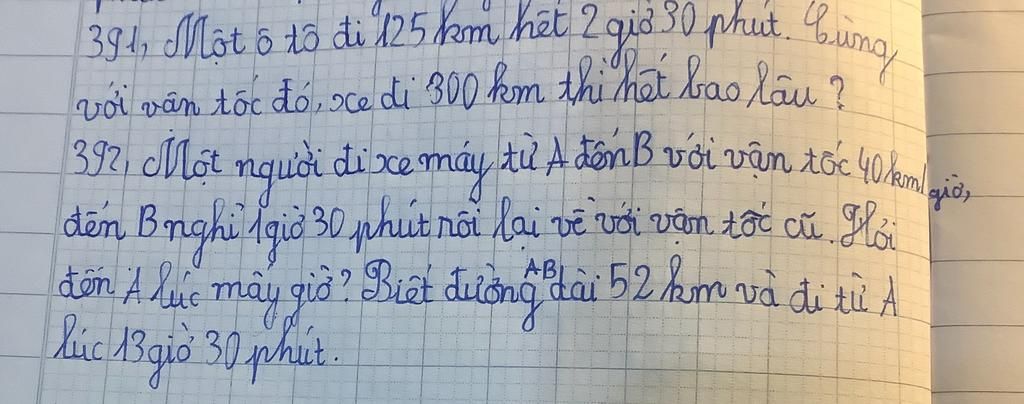 391, Một ô tô đi 125 km hết 2 giờ 30 phút. Cùng
với vân tốc đó, xe đi 300 km thì hết bao lâu ?
392, Một người đi xe máy từ A đến B với vận tốc 40 km/giờ,
đến B nghỉ 1 giờ 30 phút rồi lại về với vận tốc cũ. Hỏi
đến A lúc mấy giờ? Biết đường AB dài 52 km và đi từ A
lúc 13 giờ 30 phút.